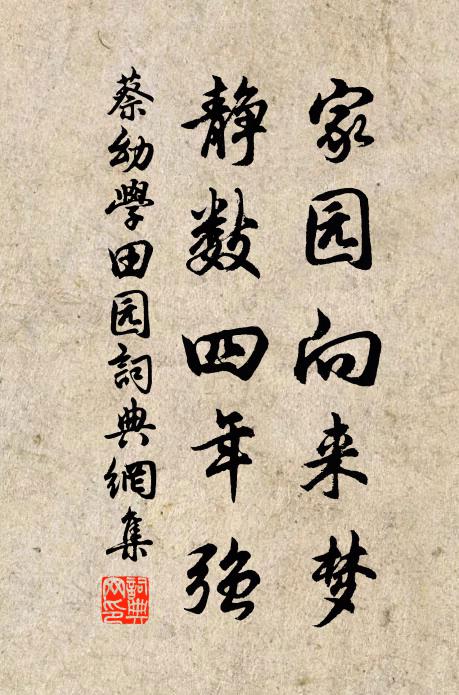 家园向来梦
静数四年强
蔡幼學田园詞典網集
詞典
网印